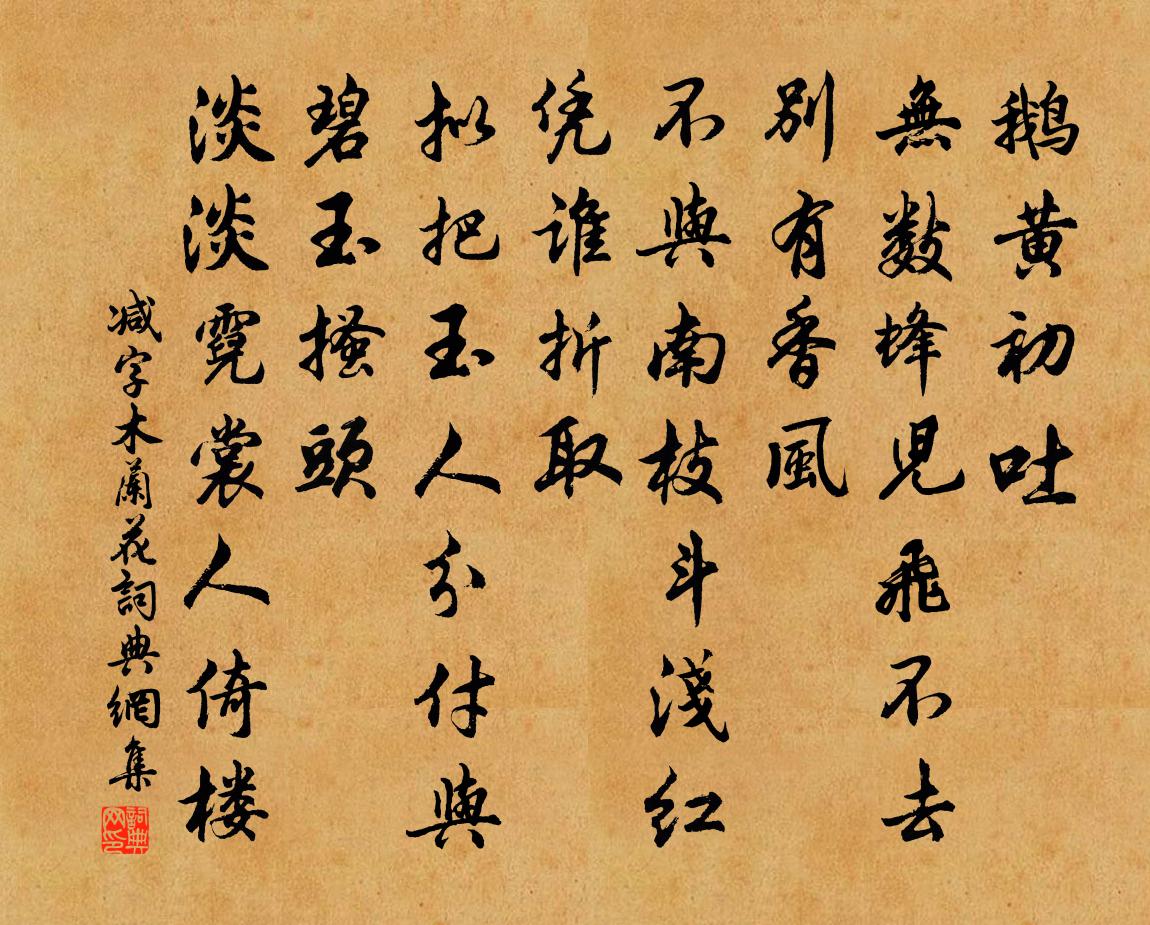 鹅黄初吐
無數蜂児飛不去
别有香風
不與南枝斗淺红
凭谁折取
拟把玉人分付與
碧玉搔頭
淡淡霓裳人倚楼
减字木蘭花詞典網集
詞典网印